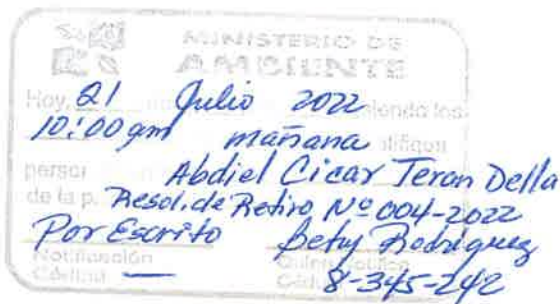 MINISTERIO DE
AMBIENTE
Hoy, 21 Julio 2022 siendo los
10:00 am mañana
Abdiel Cicar Teran Della
de la p. Resol. de Retiro Nº 004-2022
Por Escrito Betzy Rodriguez
Notificación
Cédula — 8-345-242